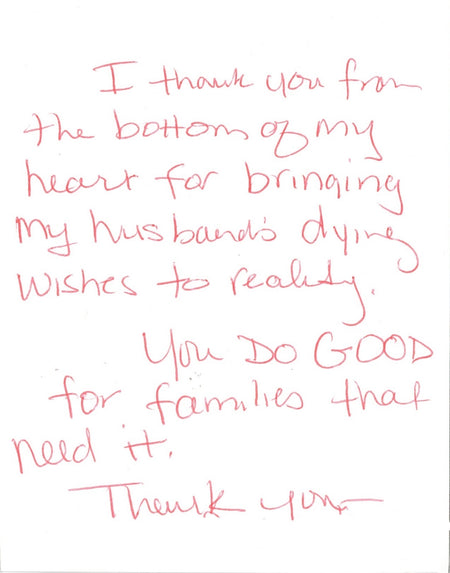 I thank you from
the bottom of my
heart for bringing
my husband's dying
wishes to reality.
You DO GOOD
for families that
need it.
Thank you